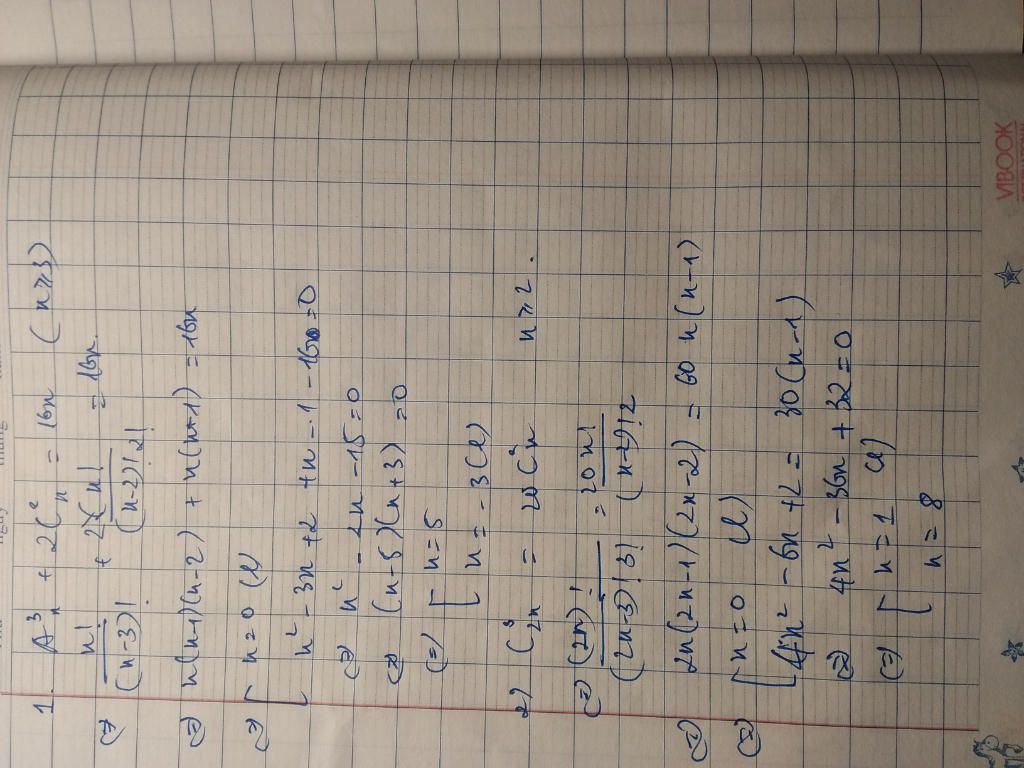 1. A³ₙ + 2C²ₙ = 16n (n ≥ 3)
(=) n!/(n-3)! + 2×n!/((n-2)! 2!) = 16n.
(=) n(n-1)(n-2) + n(n-1) = 16n
(=) [ n=0 (l)
n² - 3n + 2 + n - 1 - 16 = 0
(=) n² - 2n - 15 = 0
(=) (n-5)(n+3) = 0
(=) [ n = 5
n = -3 (l)
2) C³₂ₙ = 20C²ₙ n ≥ 2.
(=) (2n)!/((2n-3)! 3!) = 20n!/((n-2)! 2
(=) 2n(2n-1)(2n-2) = 60n(n-1)
(=) [ n=0 (l)
4n² - 6n + 2 = 30(n-1)
(=) 4n² - 36n + 32 = 0
(=) [ n = 1 (l)
n = 8
VIBOOK